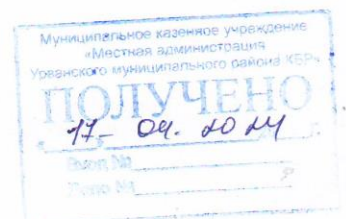 Муниципальное казенное учреждение
«Местная администрация
Урванского муниципального района КБР»
ПОЛУЧЕНО
17- 04. 2024
Вход №